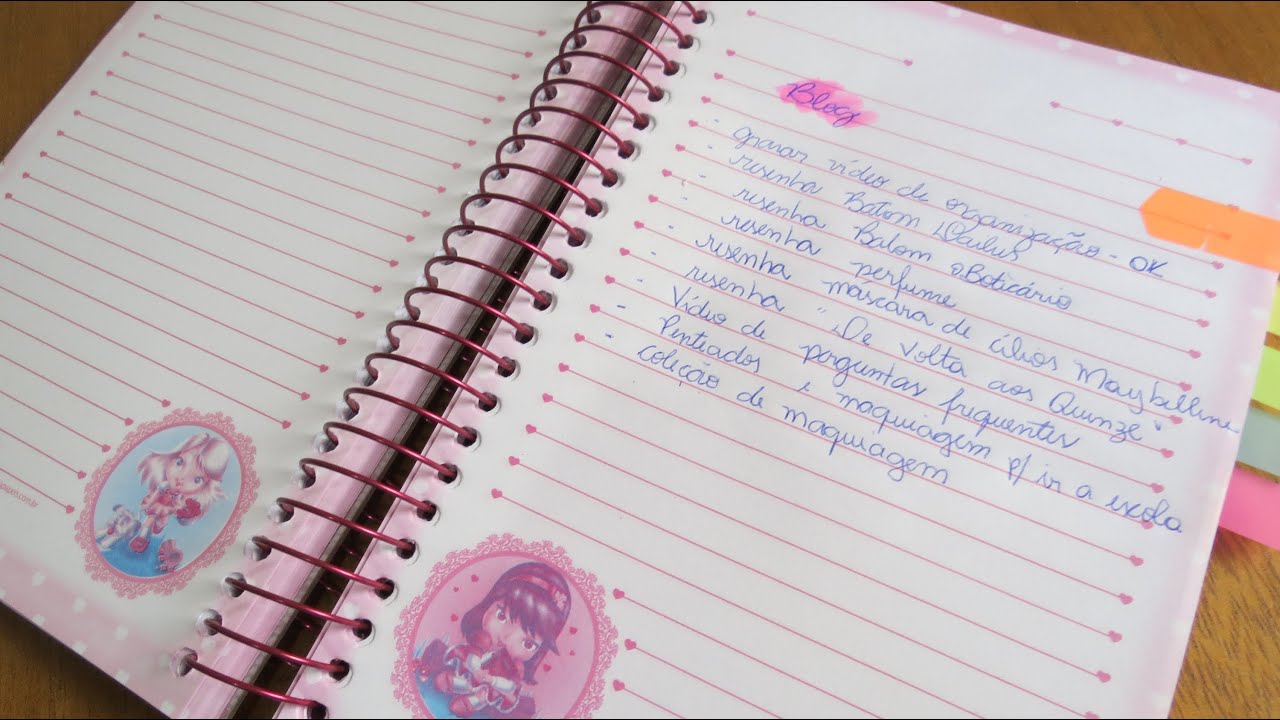 Blog
- gravar vídeo de organização - OK
- resenha Batom Dailus
- resenha Batom oBoticário
- resenha perfume
- resenha máscara de cílios Maybelline
- resenha "De Volta aos Quinze"
- Vídeo de perguntas frequentes
- Penteados e maquiagem p/ ir a escola
- Coleção de maquiagem